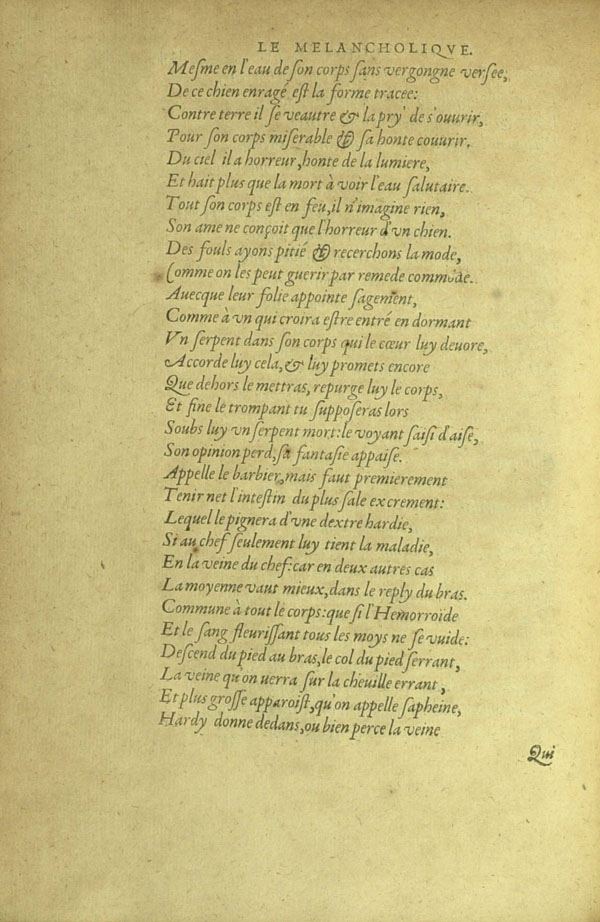 LE MELANCHOLIQVE.
Meſme en l'eau de ſon corps ſans vergongne verſee,
De ce chien enragé eſt la forme tracee:
Contre terre il ſe veautre & la pry' de s'ouurir,
Pour ſon corps miſerable & ſa honte couurir.
Du ciel il a horreur, honte de la lumiere,
Et hait plus que la mort à voir l'eau ſalutaire.
Tout ſon corps eſt en feu, il n'imagine rien,
Son ame ne conçoit que l'horreur d'vn chien.
Des fouls ayons pitié & recerchons la mode,
Comme on les peut guerir par remede commode.
Auecque leur folie appointe ſagement,
Comme à vn qui croira eſtre entré en dormant
Vn ſerpent dans ſon corps qui le cœur luy deuore,
Accorde luy cela, & luy promets encore
Que dehors le mettras, repurge luy le corps,
Et fine le trompant tu ſuppoſeras lors
Soubs luy vn ſerpent mort: le voyant ſaiſi d'aiſe,
Son opinion perd, ſa fantaſie appaiſe.
Appelle le barbier, mais faut premierement
Tenir net l'inteſtin du plus ſale excrement:
Lequel le pignera d'vne dextre hardie,
Si au chef ſeulement luy tient la maladie,
En la veine du chef: car en deux autres cas
La moyenne vaut mieux, dans le reply du bras.
Commune à tout le corps: que ſi l'Hemorroide
Et le ſang fleuriſſant tous les moys ne ſe vuide:
Deſcend du pied au bras, le col du pied ſerrant,
La veine qu'on uerra ſur la cheuille errant,
Et plus groſſe apparoiſt, qu'on appelle ſapheine,
Hardy donne dedans, ou bien perce la veine
Qui